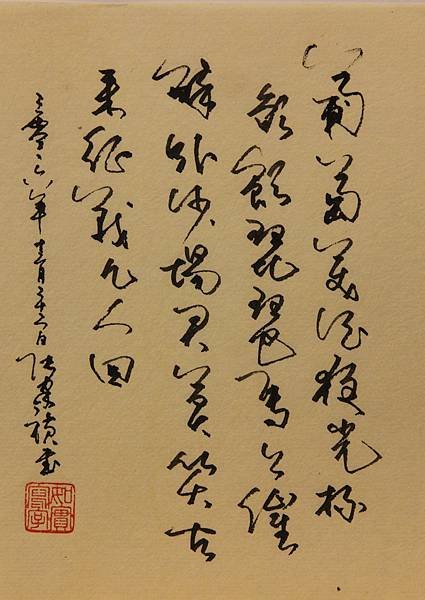 葡萄美酒夜光杯
欲飲琵琶馬上催
醉卧沙場君莫笑古
来征戰几人回
二零二六年月二十二日張書